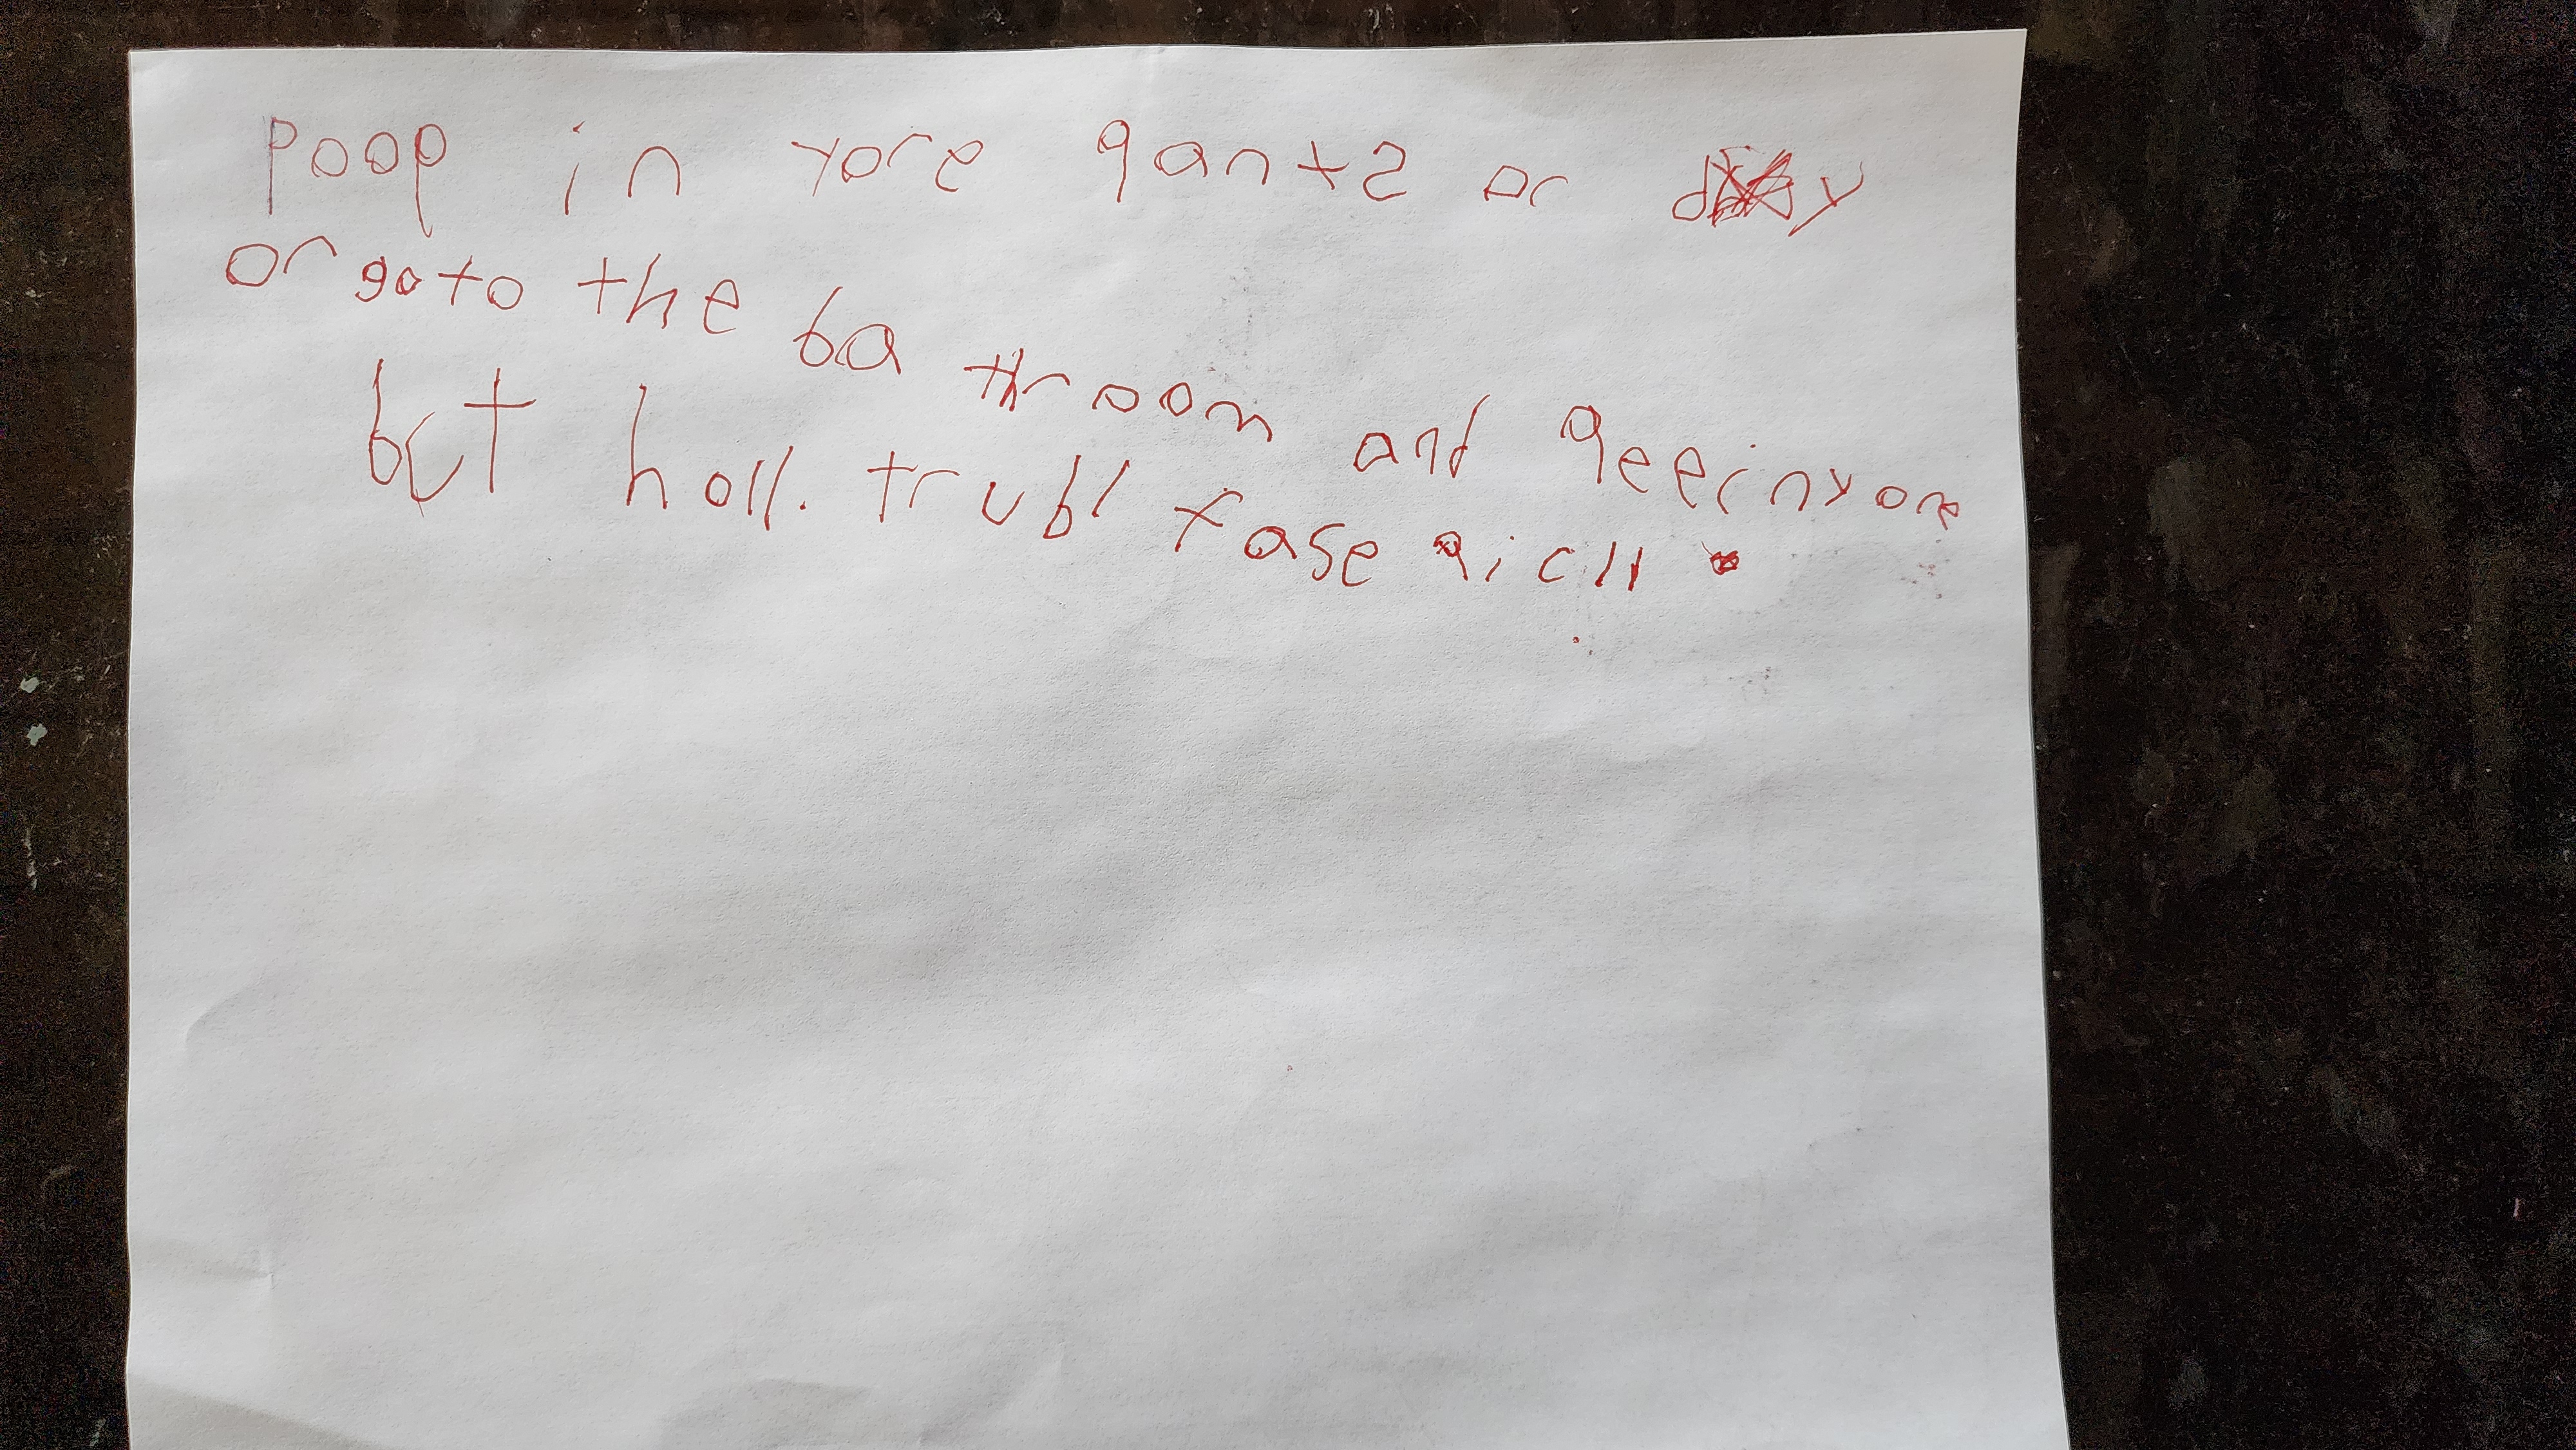 poop in yore pants or
or go to the bathroom and pee in yore
but holl. trubl fase